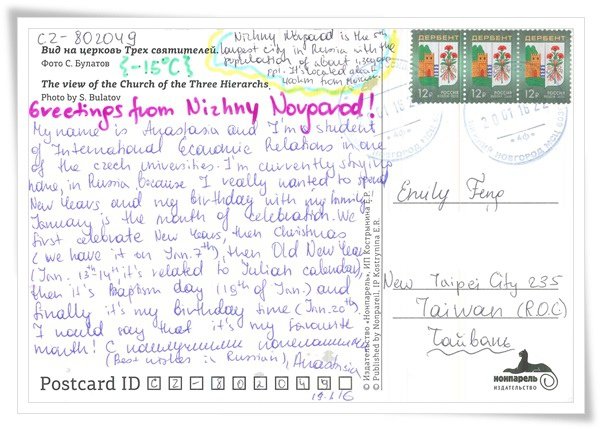 CZ-802049
Вид на церковь Трех святителей.
Фото С. Булатов
{-15°C}
The view of the Church of the Three Hierarchs
Photo by S. Bulatov
Nizhny Novgorod is the 5th
largest city in Russia with the
population of about
ppl. It's located about
from
ДЕРБЕНТ ДЕРБЕНТ ДЕРБЕНТ
12р 12р 12р
РОССИЯ РОССИЯ РОССИЯ
20 01 16 22
НОВГОРОД
Greetings from Nizhny Novgorod!
My name is Anastasia and I'm a student
of International Economic Relations in one
of the czech universities. I'm currently staying
home, in Russia, because I really wanted to spend
New Years and my birthday with my family.
January is the month of celebration. We
first celebrate New Years, then Christmas
(we have it on Jan. 7th), then Old New Year
(Jan. 13th-14th, it's related to Julian calendar),
then it's Baptism day (19th of Jan.) and
finally it's my birthday time (Jan. 20th).
I would say that it's my favourite
month! С наилучшими пожеланиями
(Best wishes in Russian), Anastasia
19.1.16
Postcard ID CZ-802049
© Издательство «Нонпарель», ИП Кострынина Е.Р.
© Published by Nonpareil, IP Kostrynina E.R.
Emily Feng
New Taipei City 235
Taiwan (R.O.C)
Тайвань
НОНПАРЕЛЬ
ИЗДАТЕЛЬСТВО